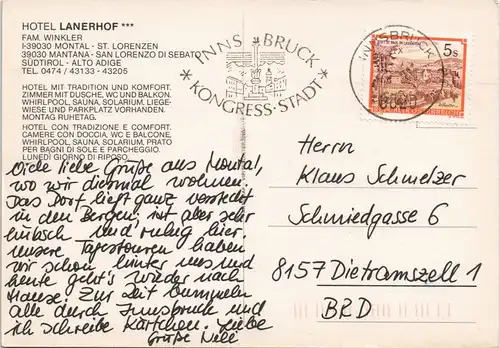 HOTEL LANERHOF ***
FAM. WINKLER
I-39030 MONTAL - ST. LORENZEN
39030 MANTANA - SAN LORENZO DI SEBATO
SÜDTIROL - ALTO ADIGE
TEL. 0474 / 43133 - 43205
HOTEL MIT TRADITION UND KOMFORT.
ZIMMER MIT DUSCHE, WC UND BALKON.
WHIRLPOOL, SAUNA, SOLARIUM, LIEGE-
WIESE UND PARKPLATZ VORHANDEN.
MONTAG RUHETAG.
HOTEL CON TRADIZIONE E COMFORT.
CAMERE CON DOCCIA, WC E BALCONE,
WHIRLPOOL, SAUNA, SOLARIUM, PRATO
PER BAGNI DI SOLE E PARCHEGGIO.
LUNEDÌ GIORNO DI RIPOSO.
Viele liebe Grüße aus Montal,
wo wir diesmal wohnen.
Das Dorf liegt ganz versteckt
in den Bergen, ist aber sehr
hübsch und ruhig hier.
Unsere Tagestouren haben
wir schon hinter uns und
heute geht's wieder nach
Hause. Zur Zeit bummeln
alle durch Innsbruck und
ich schreibe Kärtchen. Liebe
Grüße Neli
INNSBRUCK
KONGRESS-STADT
INNSBRUCK
5s
Herrn
Klaus Schmelzer
Schmiedgasse 6
8157 Dietramszell 1
BRD